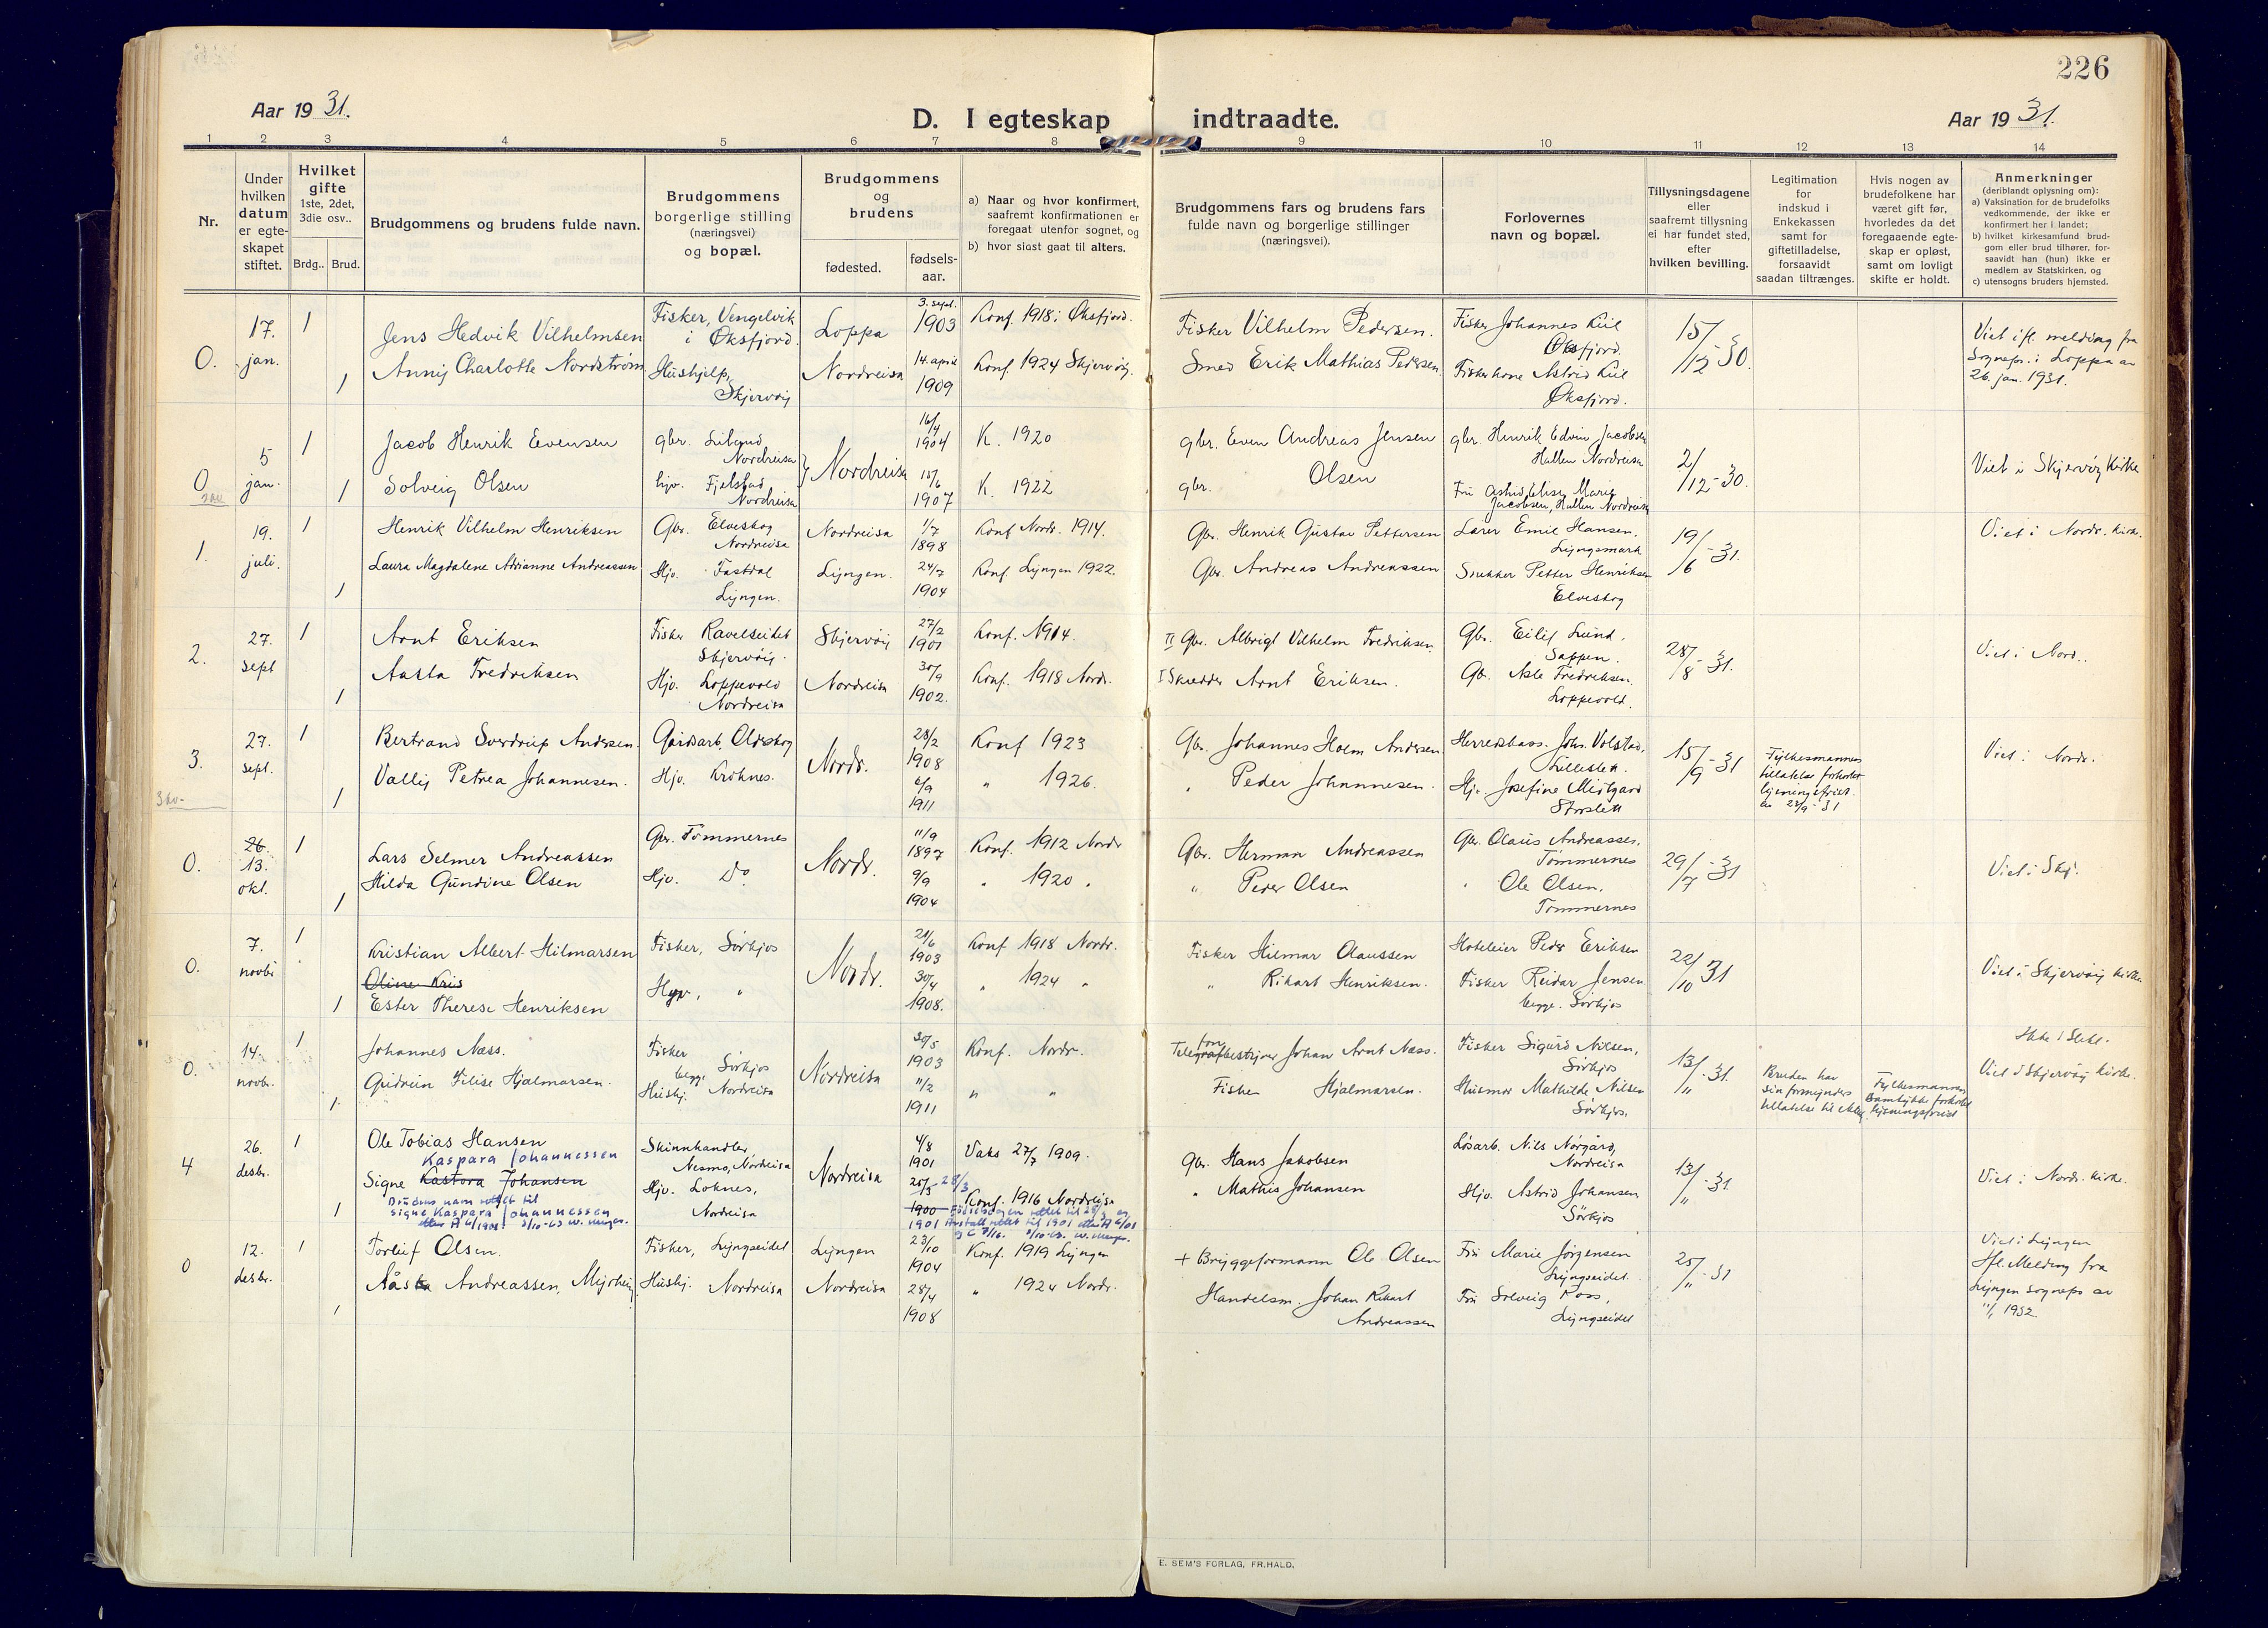 226
Aar 19 31.
D. I egteskap indtraadte.
Aar 19 31.
1 2 3 4 5 6 7 8 9 10 11 12 13 14
Nr.
Under
hvilken
datum
er egte-
skapet
stiftet.
Hvilket
gifte
1ste, 2det,
3die osv..
Brdg.. Brud.
Brudgommens og brudens fulde navn.
Brudgommens
borgerlige stilling
(næringsvei)
og bopæl.
Brudgommens
og
brudens
fødested.
fødsels-
aar.
a) Naar og hvor konfirmert,
saafremt konfirmationen er
foregaat utenfor sognet, og
b) hvor sidst gaat til alters.
Brudgommens fars og brudens fars
fulde navn og borgerlige stillinger
(næringsvei).
Forlovernes
navn og bopæl.
Tillysningsdagene
eller
saafremt tillysning
ei har fundet sted,
efter
hvilken bevilling.
Legitimation
for
indskud i
Enkekassen
samt for
giftetilladelse,
forsaavidt
saadan tiltrænges.
Hvis nogen av
brudefolkene har
været gift før,
hvorledes da det
foregaaende egte-
skap er opløst,
samt om lovligt
skifte er holdt.
Anmerkninger
(deriblandt oplysning om):
a) Vaksination for de brudefolks
vedkommende, der ikke er
konfirmert her i landet;
b) hvilket kirkesamfund brud-
gom eller brud tilhører, for-
saavidt han (hun) ikke er
medlem av Statskirken, og
c) utensogns bruders hjemsted.
0. 17. jan. 1 1
Jens Hedvik Vilhelmsen
Anny Charlotte Nordstrøm
Fisker, Vengelvik
i Øksfjord.
Hushjelp,
Skjervøy
Loppa
Nordreisa
3. sept.
1903
14. april
1909
Konf. 1918 i Øksfjord.
Konf. 1924 Skjervøy.
Fisker Vilhelm Pedersen.
Smed Erik Mathias Pedersen
Fisker Johannes Kiil
Øksfjord.
Fiskerkone Astrid Kiil
Øksfjord.
15/12-30.
Viet ifl. melding fra
Sognepr. i Loppa av
26. jan. 1931.
0 5 jan. 1 1
Jacob Henrik Evensen
Solveig Olsen
gbr.
Nordreisa
hjv. Fjelstad
Nordreisa
Nordreisa
16/4
1904
15/6
1907
K. 1920
K. 1922
gbr. Even Andreas Jensen
gbr. Olsen
gbr. Henrik Edvin Jacobsen
Hallen Nordreisa
Fru Marie
Jacobsen, Hallen Nordreisa
2/12-30.
Viet i Skjervøy Kirke
1. 19. juli. 1 1
Henrik Vilhelm Henriksen
Laura Magdalene Adrianne Andreassen
Gbr. Elveskog
Nordreisa
Hjv. Fastdal
Lyngen.
Nordreisa
Lyngen.
1/7
1898
24/7
1904
Konf Nordr. 1914.
Konf Lyngen 1922.
Gbr. Henrik Gustav Pettersen
Gbr. Andreas Andreassen
Lærer Emil Hansen.
Lyngsmark
Snekker Petter Henriksen
Elveskog
19/6-31.
Viet i Nordr. kirke.
2. 27. sept 1 1
Arnt Eriksen
Aasta Fredriksen
Fisker Ravelseidet
Skjervøy.
Hjv. Loppevold
Nordreisa
Skjervøy
Nordreisa
27/2
1901
30/9
1902.
Konf. N 1914.
Konf. 1918 Nordr.
II Gbr. Albrigt Vilhelm Fredriksen.
I Skredder Arnt Eriksen.
Gbr. Eilif Lund.
Sappen.
Gbr. Asle Fredriksen.
Loppevold.
28/8-31.
Viet i Nord..
3. 27. sept. 1 1
Bertrand Sverdrup Andersen.
Vally Petrea Johannesen.
Gårdsarb. Olderskog
Hjv. Kroknes.
Nordr.
28/2
1908
6/9
1911
Konf 1923
" 1926.
Gbr. Johannes Holm Andersen
" Peder Johannesen.
Herredskass. Johs. Volstad.
Lilleslett.
Hjv. Josefine Midtgard
Storslett
15/9-31
Fylkesmannens
tillatelse forkortet
lysningsfrist.
av 23/9-31
Viet i Nordr.
0. 26. 13. okt. 1 1
Lars Selmer Andreassen
Hilda Gundine Olsen
Gbr. Tømmernes
Hjv. Do
Nordr.
11/9
1897
9/9
1904
Konf. 1912 Nordr
" 1920 "
Gbr. Herman Andreassen
" Peder Olsen
Gbr. Olaus Andreassen.
Tømmernes
" Ole Olsen.
Tømmernes
29/7-31
Viet i Skj.
0. 7. novbr 1 1
Kristian Albert Hilmarsen
Oline Kris
Ester Therese Henriksen
Fisker, Sørkjos
Hjv, "
Nordr.
21/6
1903
30/4
1908.
Konf 1918 Nordr.
" 1924 "
Fisker Hilmar Olaussen
" Rikart Henriksen.
Hoteleier Peder Eriksen
Fisker Reidar Jensen
begge. Sørkjos
22/10 31
Viet i Skjervøy kirke.
0. 14. novbr. 1 1.
Johannes Næss.
Gudrun Filise Hjalmarsen.
Fisker
begge Sørkjos
Hushj. Nordreisa
Nordreisa
30/5
1903
11/2
1911
Konf. Nordr.
" "
fon
Telegrafbestyrer Johan Arnt Næss.
Fisker Hjalmarsen.
Fisker Sigurd Nilsen,
Sørkjos
Husmor Mathilde Nilsen
Sørkjos.
13/11-31.
Bruden har
sin formynders
tillatelse til ekteg.
Fylkesmannens
samtykke forkortet
lysningsfrist
Viet i Skjervøy Kirke.
4 26. desbr. 1 1
Ole Tobias Hansen
Kaspara Johannessen
Signe Kastora Johansen
Brudens navn rettet til
Signe Kaspara Johannessen
etter A 6/1901. 3/10-63
Skinnhandler,
Nesmo, Nordreisa
Hjv. Loknes,
Nordreisa
Nordreisa
4/8
1901
25/3 28/3
1900
1901
Vaks 27/7 1909.
Konf. 1916 Nordreisa
Fødselsdagen rettet til 28/3 og
Årstall rettet til 1901 etter A 6/01
Gbr. Hans Jakobsen
" Mathis Johansen
Løsarb. Nils Nørgård,
Nordreisa
Hjv. Astrid Johansen
Sørkjos
13/11-31.
Viet i Nordr. kirke.
0 12. desbr. 1 1
Torleif Olsen.
Åsta Andreassen,
Fisker, Lyngseidet
Hushj. Nordreisa
Lyngen
Nordreisa
23/10
1904
28/4
1908
Konf. 1919 Lyngen
" 1924 Nordr.
+ Bryggeformann Ole Olsen
Handelsm. Johan Rikart
Andreassen
Fru Marie Jørgensen
Lyngseidet.
Fru Solveig
Lyngseidet
25/11-31
Viet i Lyngen
Ifl. Melding fra
Lyngen sognepr av
1932
E. SEM'S FORLAG, FR.HALD.